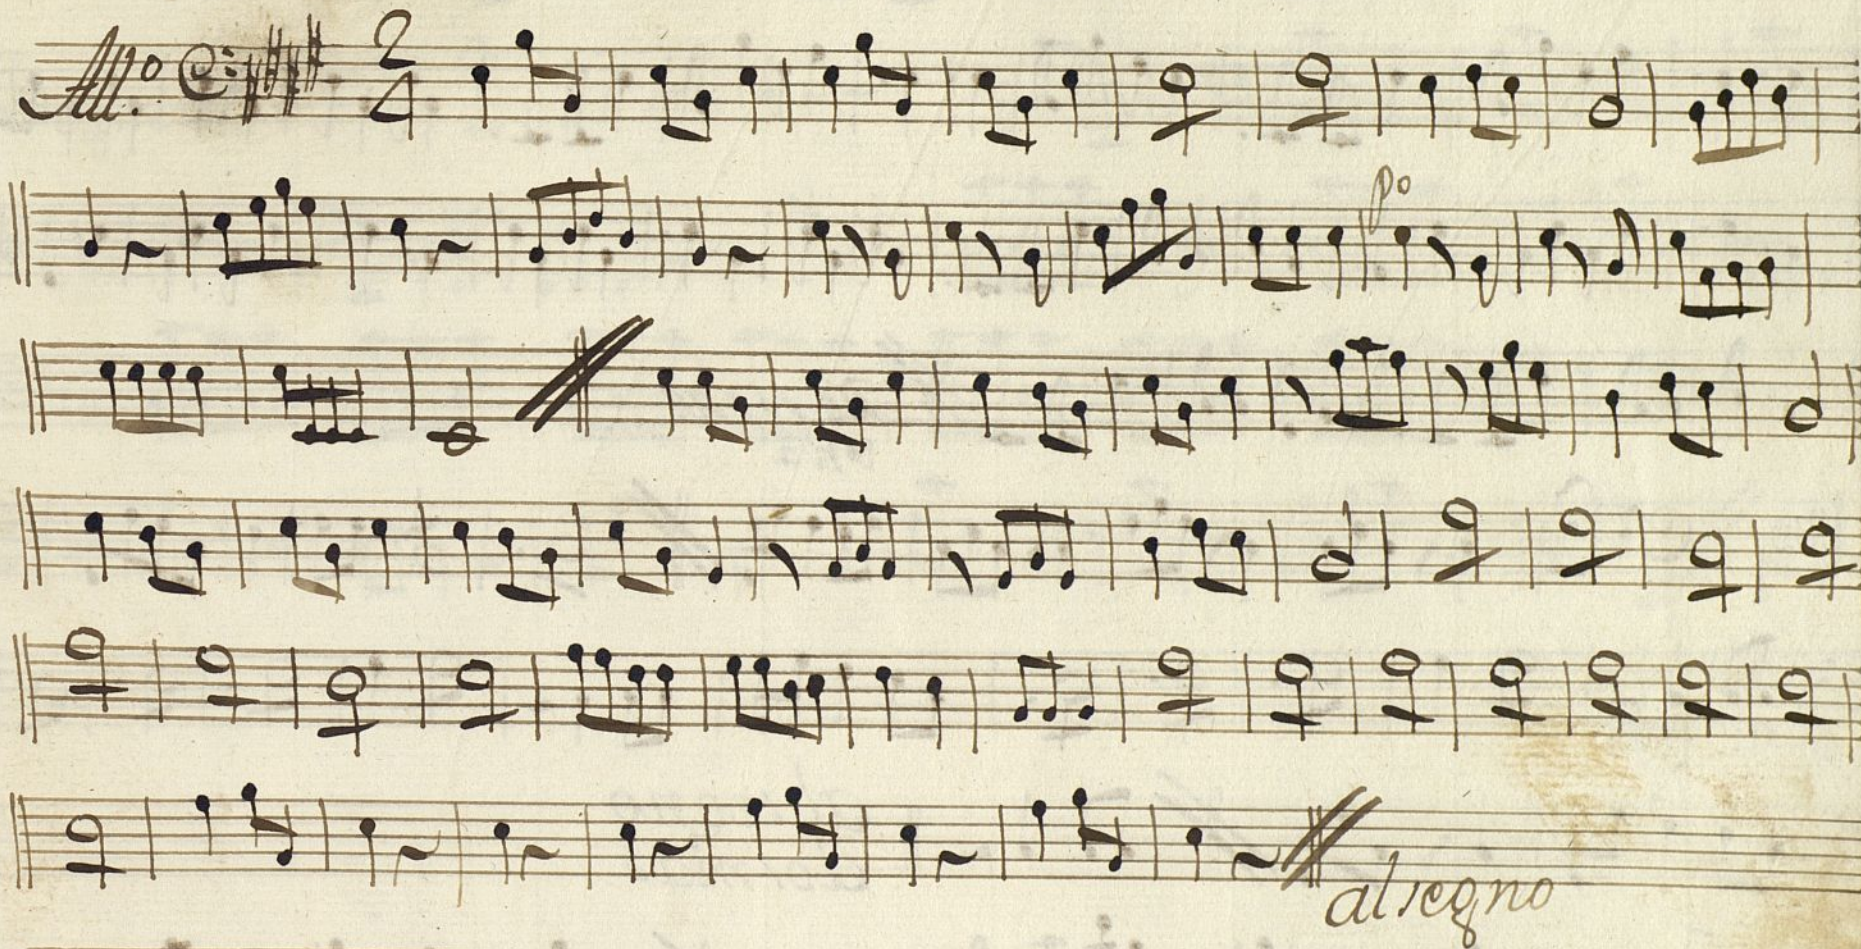 All.o 2
4
po
al segno